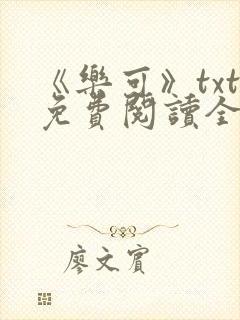 《樂可》txt
免費閱讀全
廖文賓